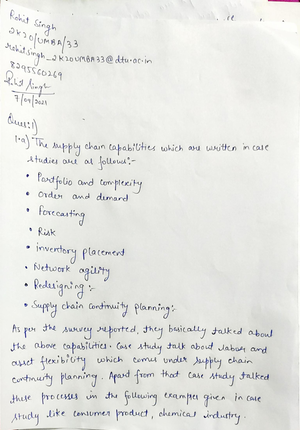 Rohit Singh
2K20/UMBA/33
rohitsingh_2K20UMBA33@dtu.ac.in
8295560269
Rohit Singh
7/04/2021
Ques:1)
1.a) The supply chain capabilities which are written in case
studies are as follows:-
• Portfolio and complexity
• Order and demand
• Forecasting
• Risk
• inventory placement
• Network agility
• Redesigning :-
• Supply chain continuity planning:-
As per the survey reported, they basically talked about
the above capabilities. Case study talk about labour and
asset flexibility which comes under supply chain
continuity planning. Apart from that case study talked
these processes in the following examples given in case
study like consumer product, chemical industry.